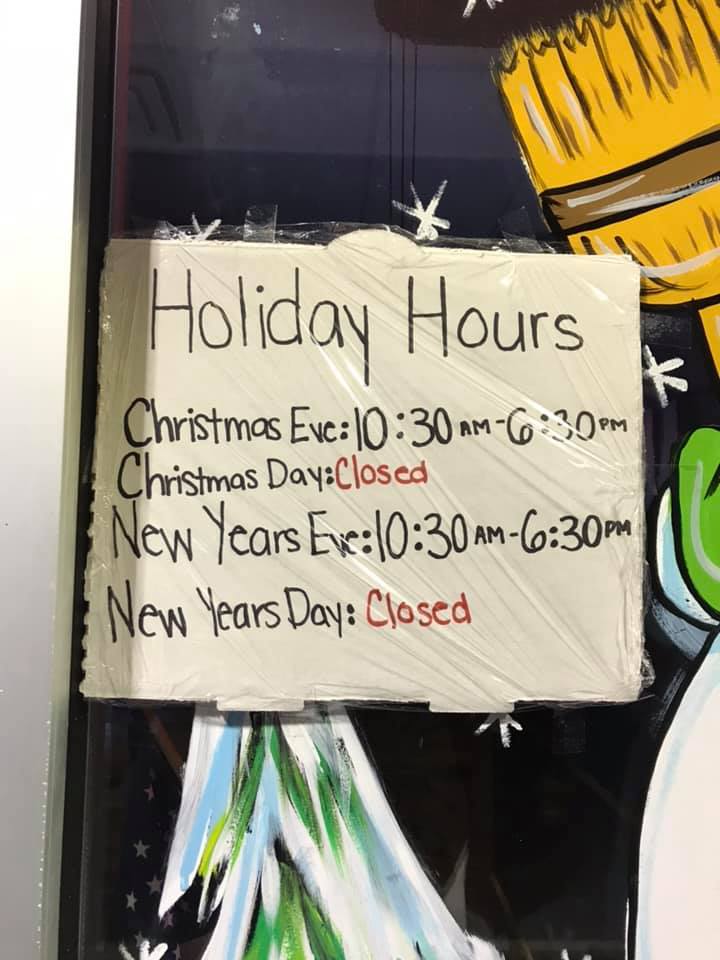 Holiday Hours
Christmas Eve: 10:30 AM-6:30 PM
Christmas Day: Closed
New Years Eve: 10:30 AM-6:30 PM
New Years Day: Closed